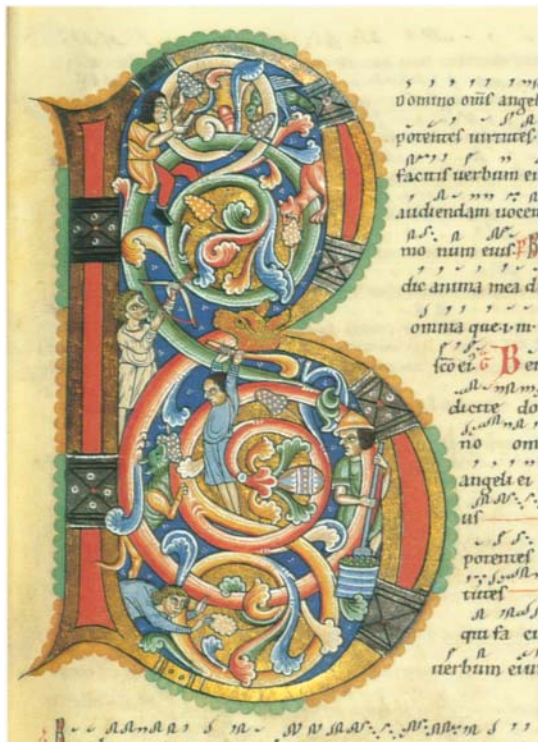 B
Domino omīs angel
potentes uirtutes
facitis uerbum ei
audiendam uocem
mo num eius. B
dic anima mea d
omnia que
sc̄o ei. G Ben
dicite do
no om
angeli ei
us
potentes
tutes
qui fa ci
uerbum eiu